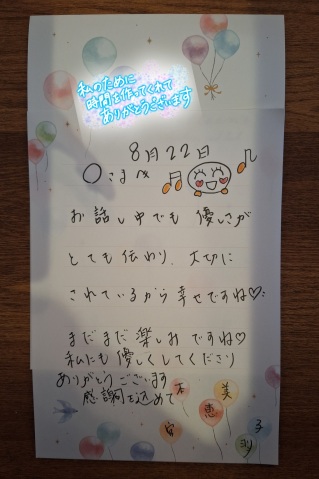 私のために
時間を作ってくれて
ありがとうございます
8月22日
○さまへ
お話し中でも 優しさが
とても伝わり、大切に
されているから幸せですね♡
まだまだ楽しみですね♡
私にも優しくしてくださり
ありがとうございます
感謝を込めて
美
恵